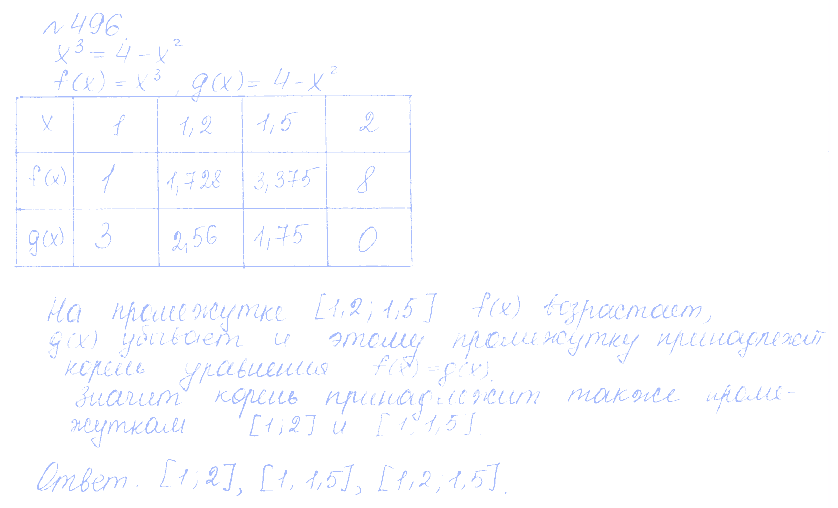 №496.
x³ = 4 - x²
f(x) = x³, g(x) = 4 - x²
x 1 1,2 1,5 2
f(x) 1 1,728 3,375 8
g(x) 3 2,56 1,75 0
На промежутке [1,2; 1,5] f(x) возрастает,
g(x) убывает и этому промежутку принадлежит
корень уравнения f(x)=g(x).
Значит корень принадлежит также проме-
жуткам [1;2] и [1;1,5].
Ответ. [1;2], [1,1,5], [1,2,1,5].